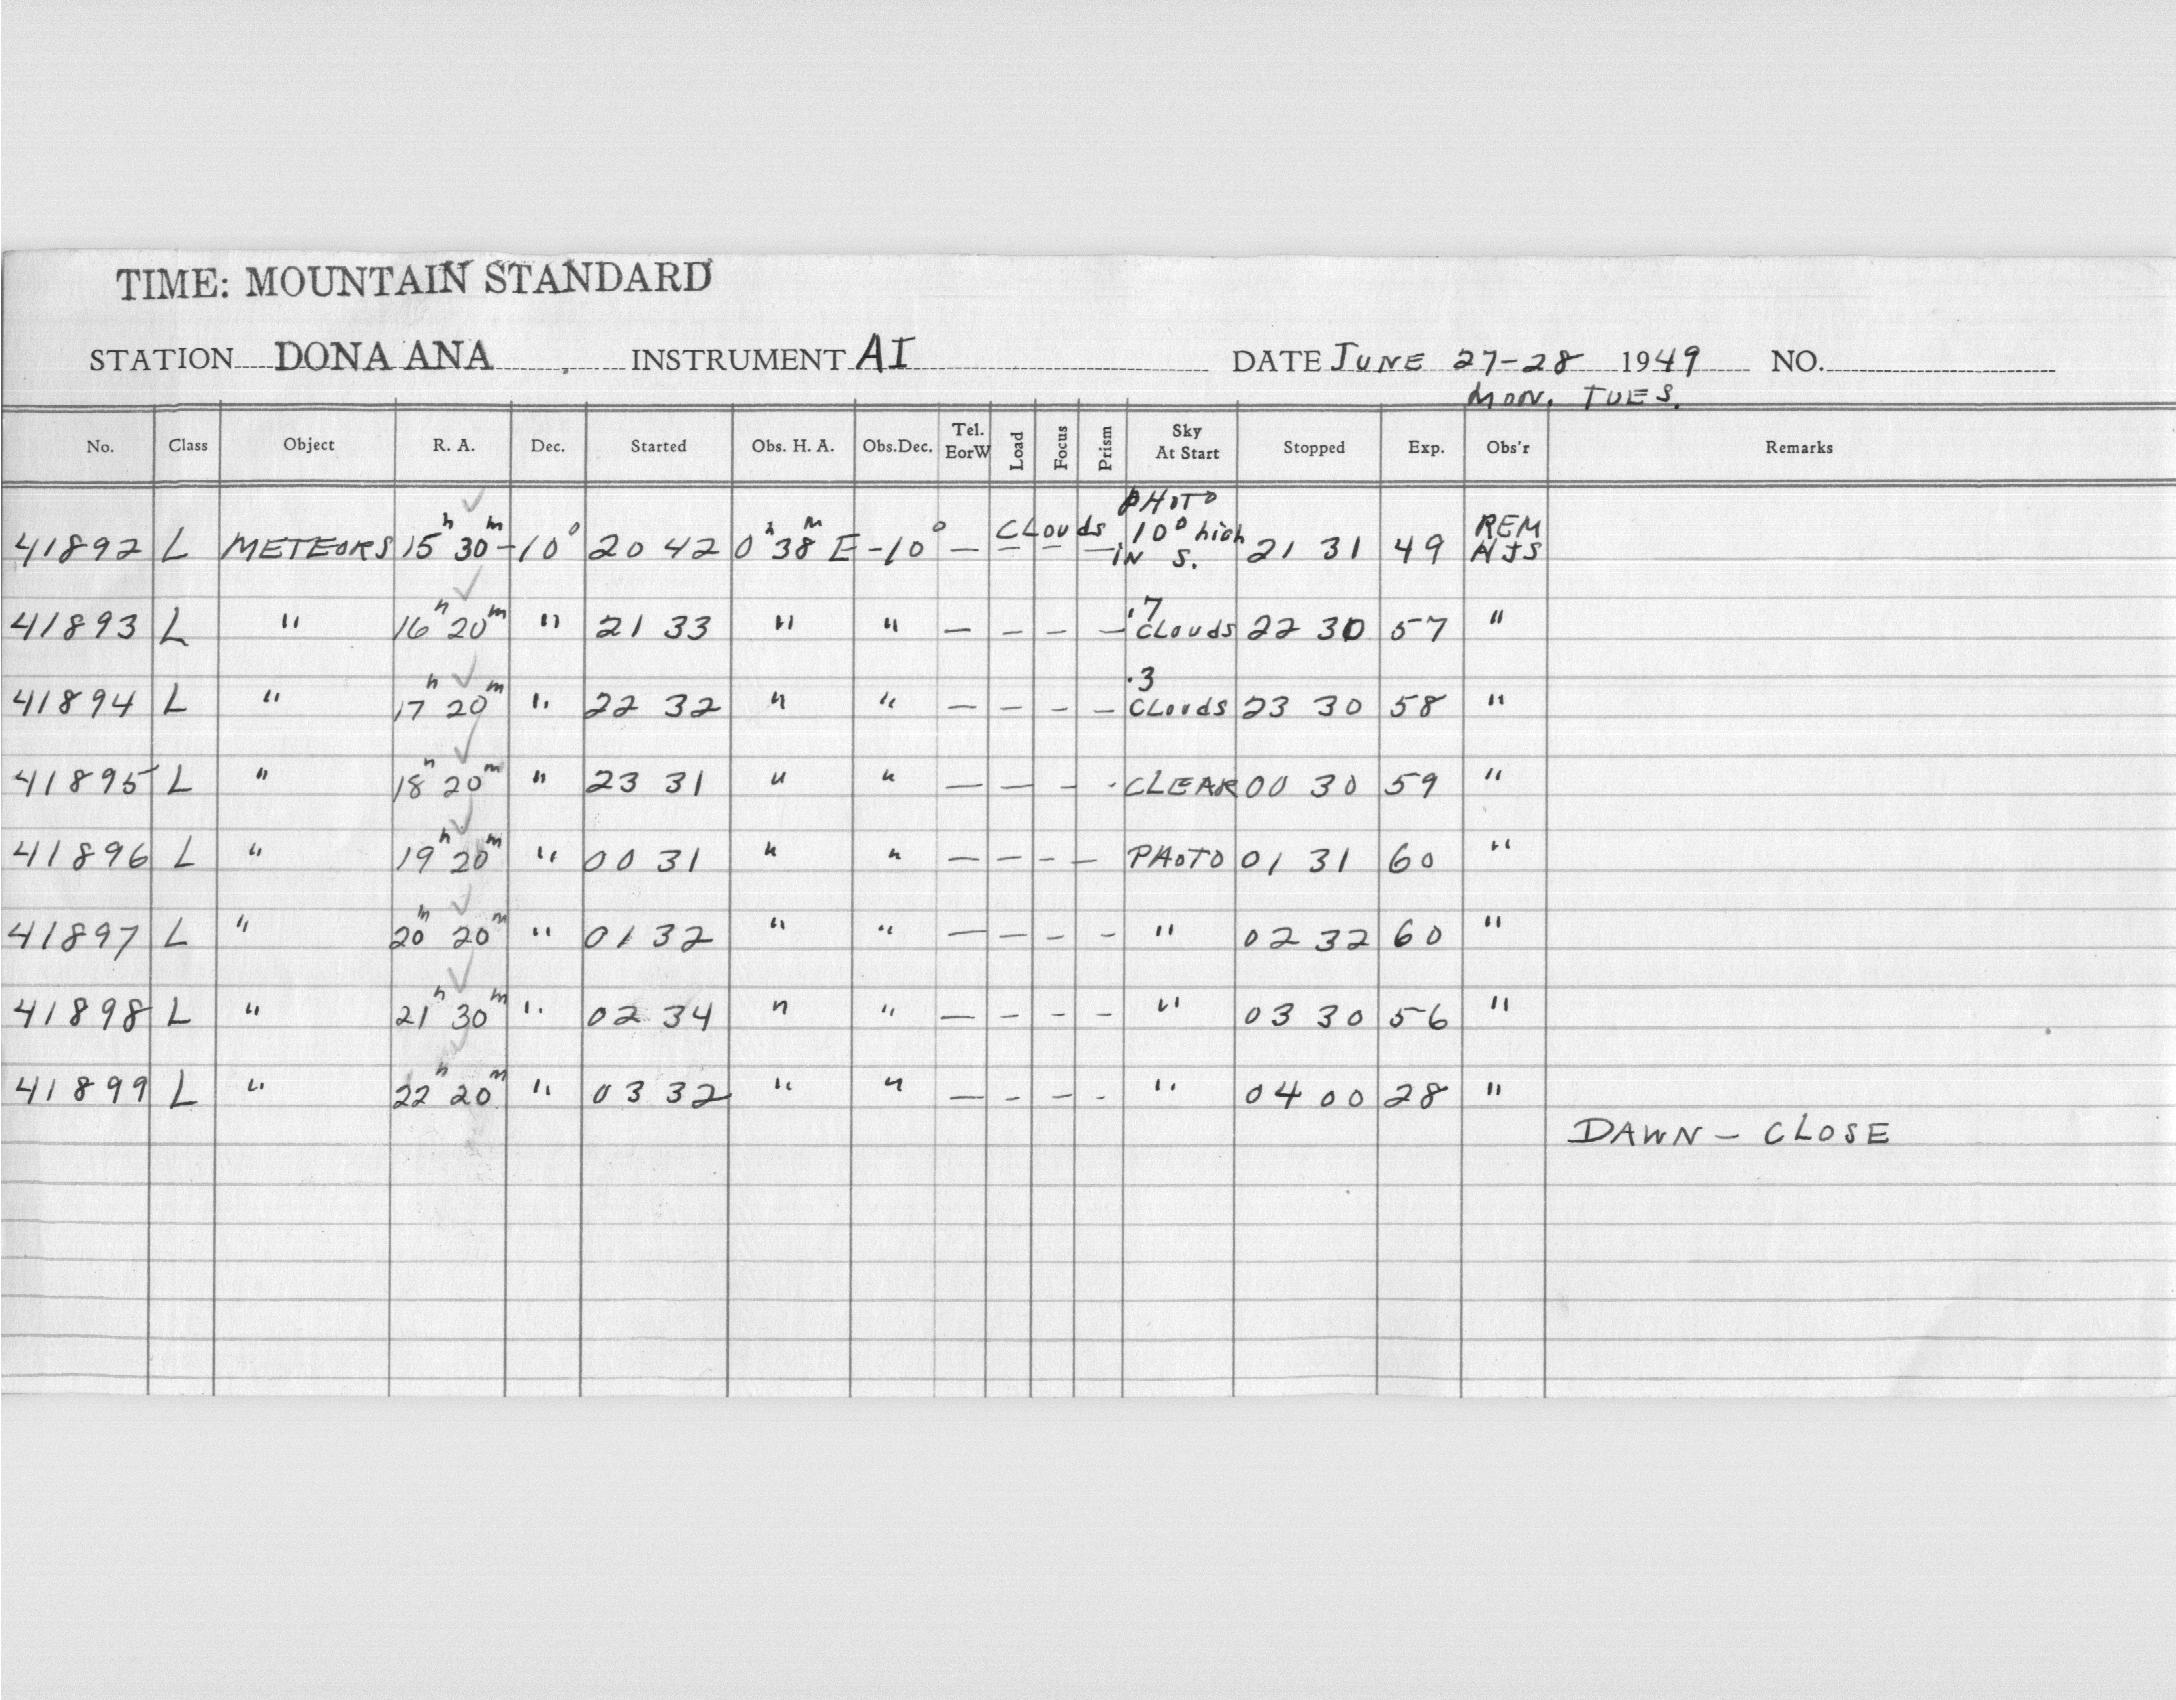 TIME: MOUNTAIN STANDARD
STATION DONA ANA INSTRUMENT AI DATE JUNE 27-28 1949 NO.
MON. TUES.
No. Class Object R. A. Dec. Started Obs. H. A. Obs.Dec. Tel. EorW Load Focus Prism Sky At Start Stopped Exp. Obs'r Remarks
41892 L METEORS 15h 30m -10° 20 42 0h 38m E -10° — — — — CLouds PHOTO 10° high iN S. 21 31 49 REM HJS
41893 L " 16h 20m " 21 33 " " — — — — .7 CLouds 22 30 57 "
41894 L " 17h 20m " 22 32 " " — — — — .3 CLouds 23 30 58 "
41895 L " 18h 20m " 23 31 " " — — - - CLEAR 00 30 59 "
41896 L " 19h 20m " 00 31 " " — — — — PHOTO 01 31 60 "
41897 L " 20h 20m " 01 32 " " — — — — " 02 32 60 "
41898 L " 21h 30m " 02 34 " " — — — — " 03 30 56 "
41899 L " 22h 20m " 03 32 " " — - — - " 04 00 28 "
DAWN — CLOSE